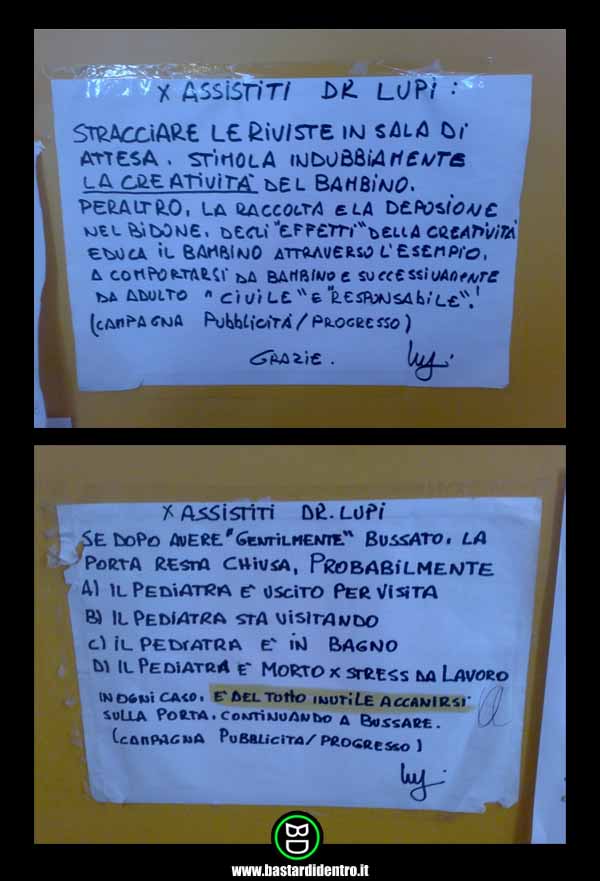 X ASSISTITI DR LUPI:
STRACCIARE LE RIVISTE IN SALA DI
ATTESA. STIMOLA INDUBBIAMENTE
LA CREATIVITÀ DEL BAMBINO.
PERALTRO, LA RACCOLTA E LA DEPOSIONE
NEL BIDONE, DEGLI "EFFETTI" DELLA CREATIVITÀ
EDUCA IL BAMBINO ATTRAVERSO L'ESEMPIO,
A COMPORTARSI DA BAMBINO E SUCCESSIVAMENTE
DA ADULTO "CIVILE" E "RESPONSABILE"!
(CAMPAGNA PUBBLICITÀ/PROGRESSO)
GRAZIE. Lupi
X ASSISTITI DR. LUPI
SE DOPO AVERE "GENTILMENTE" BUSSATO, LA
PORTA RESTA CHIUSA, PROBABILMENTE
A) IL PEDIATRA E' USCITO PER VISITA
B) IL PEDIATRA STA VISITANDO
C) IL PEDIATRA E' IN BAGNO
D) IL PEDIATRA E' MORTO X STRESS DA LAVORO
IN OGNI CASO, E' DEL TUTTO INUTILE ACCANIRSI
SULLA PORTA, CONTINUANDO A BUSSARE.
(CAMPAGNA PUBBLICITA/PROGRESSO)
Lupi
www.bastardidentro.it